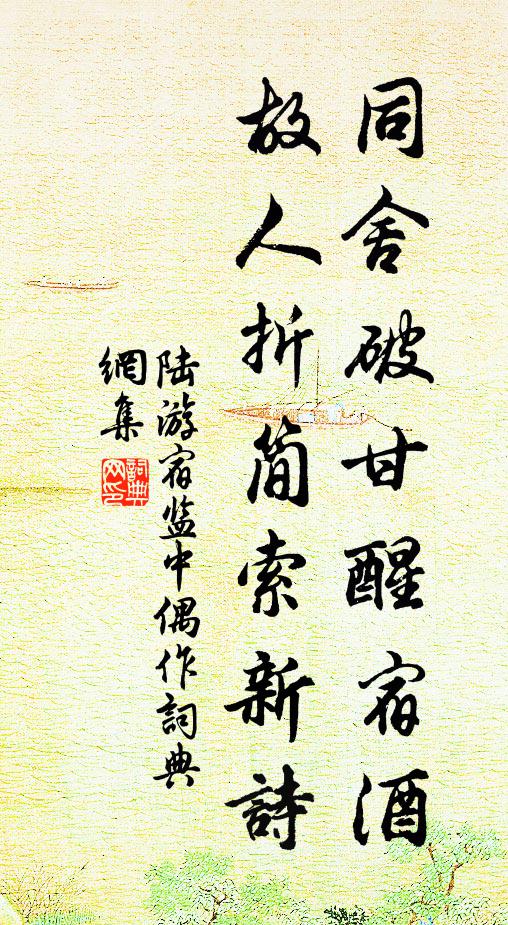 同舍破甘醒宿酒
故人折简索新詩
陆游宿监中偶作詞典
網集
詞典
网印